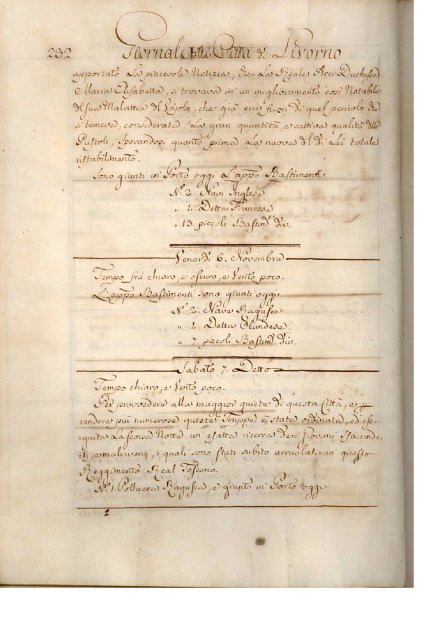 232 Giornale della Città di Livorno
apportato la piacevole Notizia, che la Reale Arci-Duchessa
Maria Elisabetta, si trovava in un miglioramento così notabile
di sua Malattia di Vajolo, che già era fuori di quel pericolo che
si temeva, considerata la gran quantità, e cattiva qualità delle
Pustole, sperandosi quanto prima la nuova di di Lei totale
ristabilimento.
Sono giunti in Porto oggi l'appo Bastimenti
N.° 2. Navi Inglese
" 1. Detta Francese
" 13. piccoli Bastim.ti div.
Venardì 6. Novembre
Tempo frà chiaro, e oscuro, e Vento poco.
L'appo Bastimenti sono giunti oggi.
N.° 2. Nave Ragusea
" 1. Detta Olandese
" 7. piccoli Bastim.ti div.
Sabato 7. Detto
Tempo chiaro, e Vento poco.
Per provvedere alla maggior quiete di questa Città, e
rendere più numerose queste Truppe è stata ordinata, ed ese-
guita la scorsa Notte un esatta ricerca de Giovani sfacenda-
ti, e malviventi, i quali sono stati subito arruolati in questo
Reggimento Real Toscano.
N.° 1. Pollacca Ragusea, è giunto in Porto oggi